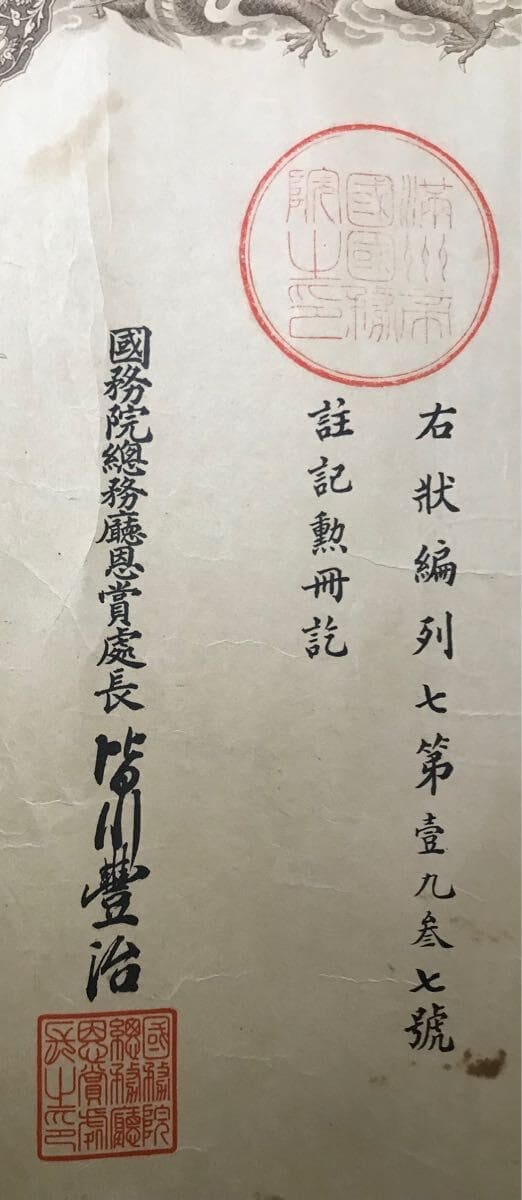 滿州帝
國國務
院之印
右狀編列七第壹九叁七號
註記勲冊訖
國務院總務廳恩賞處長 皆川豐治
國務院
總務廳
恩賞處
長之印